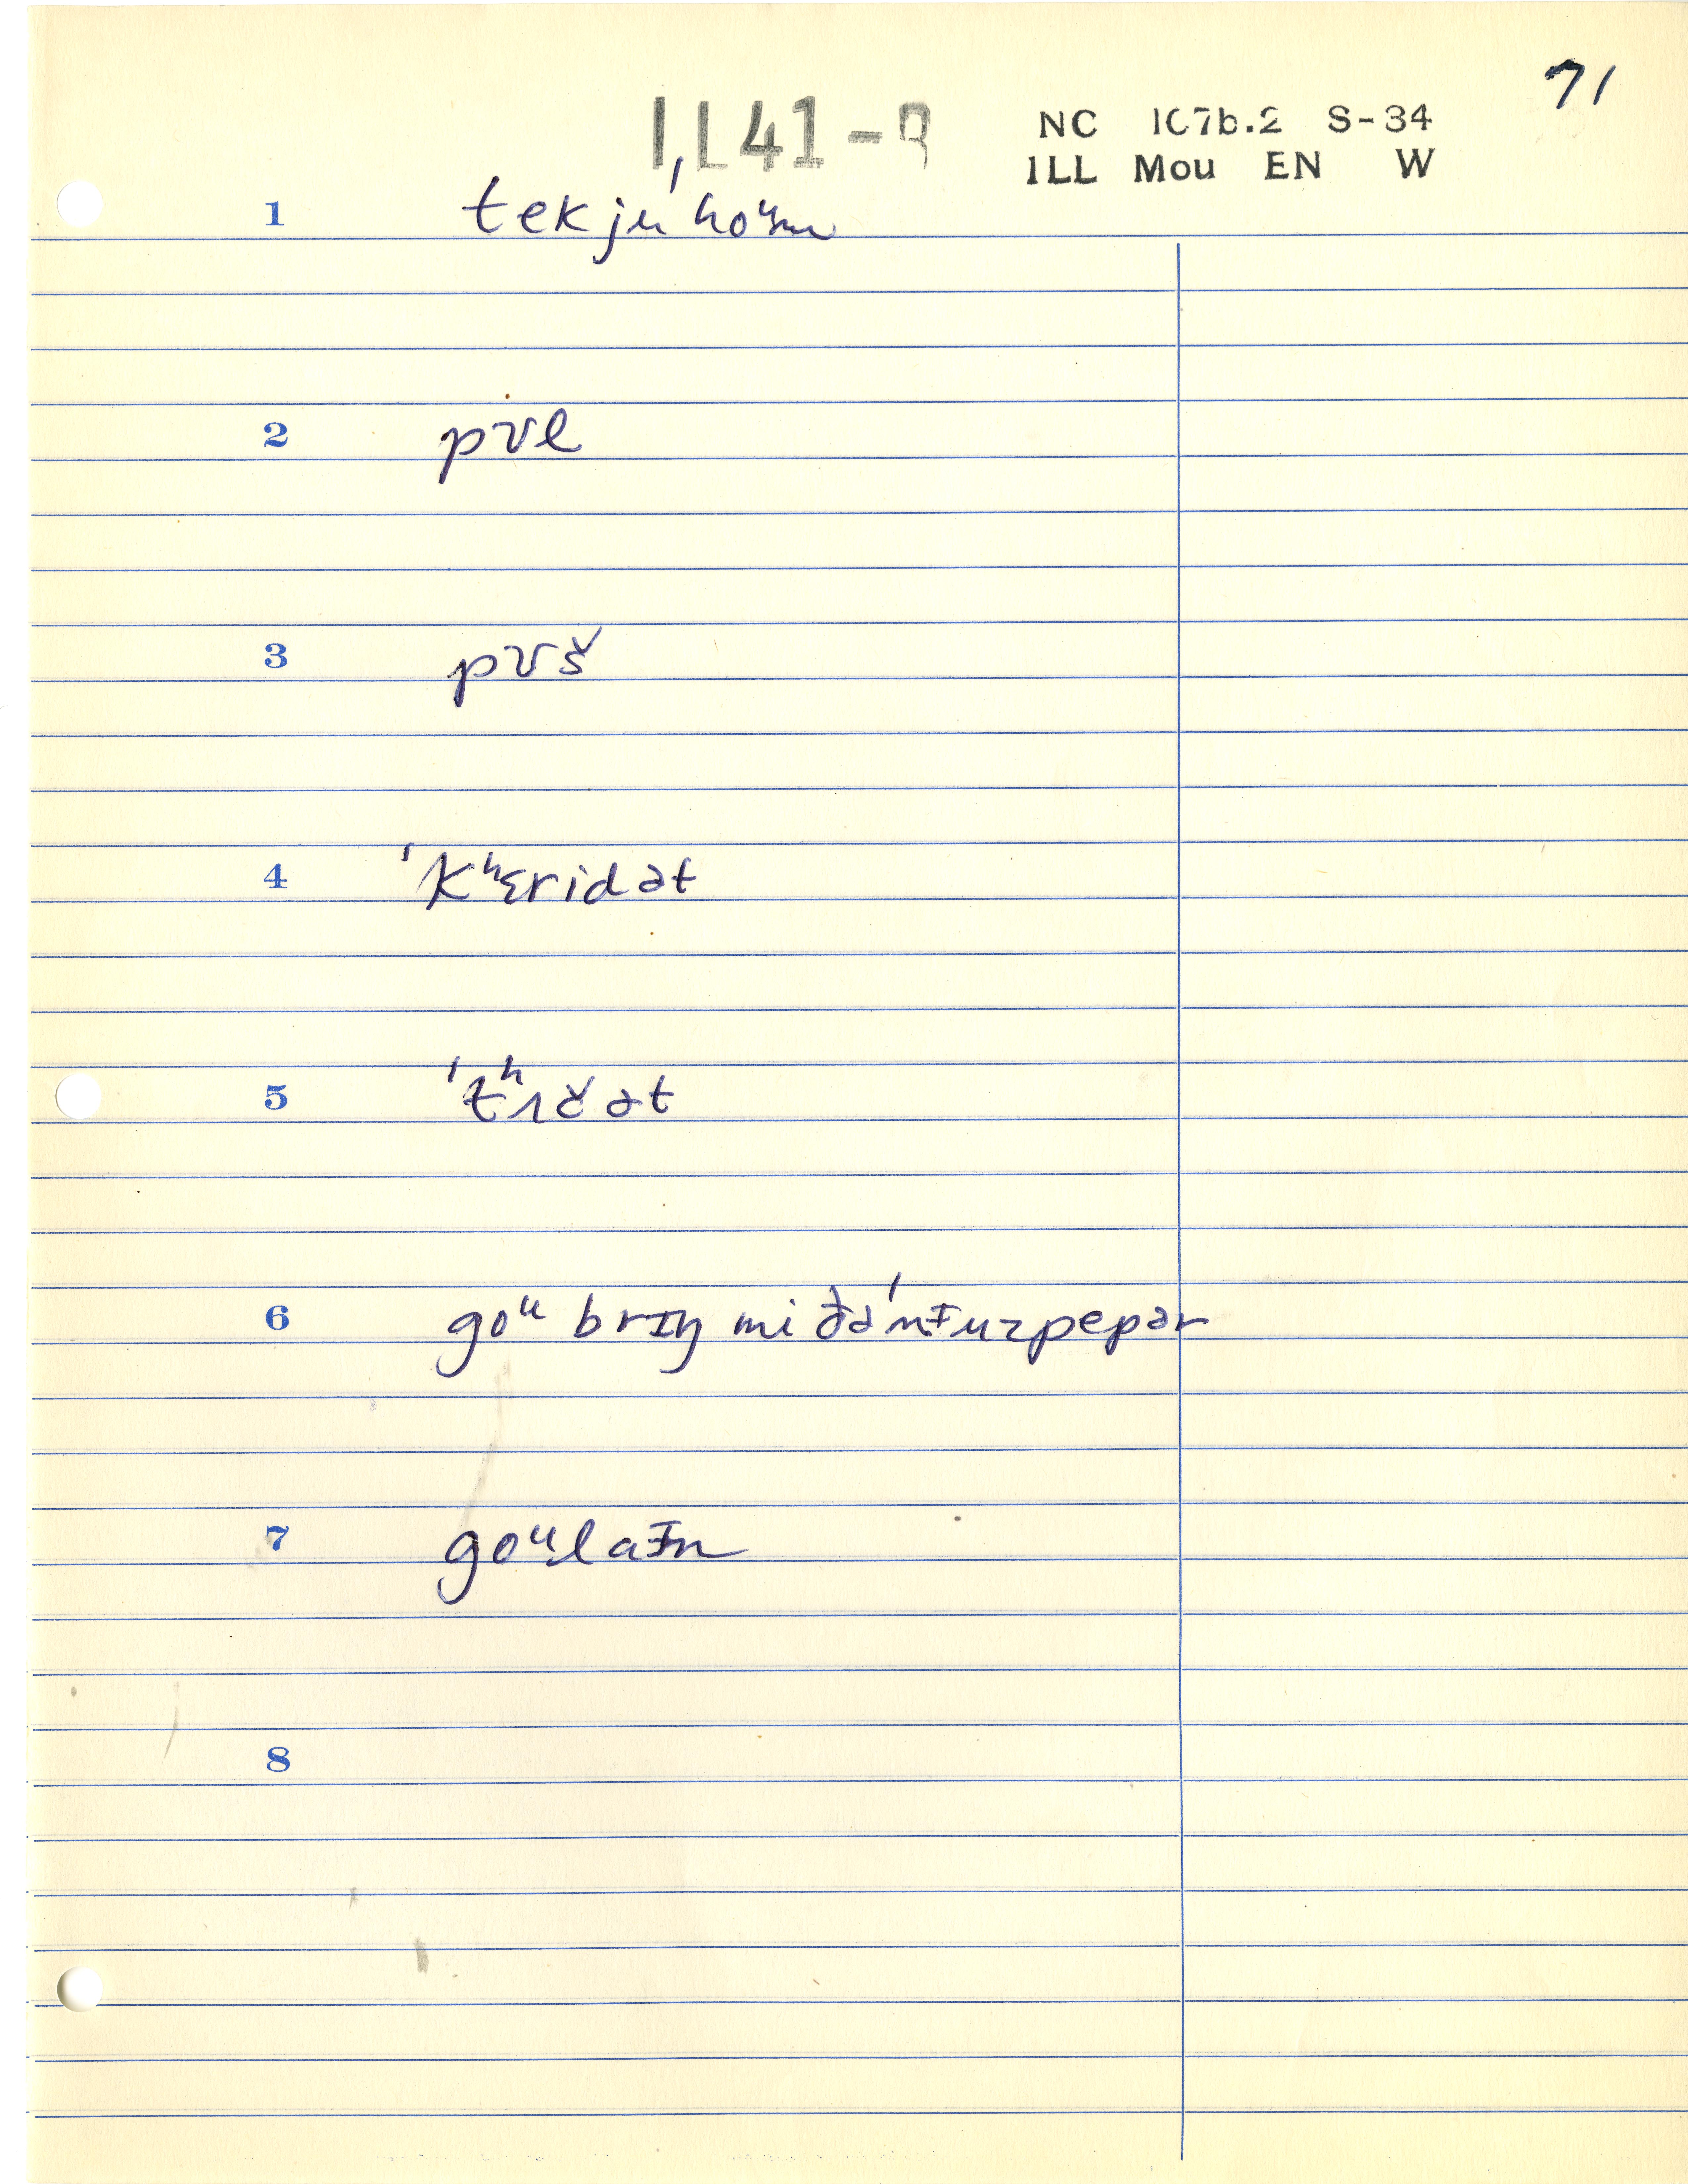 71
NC 1C7b.2 S-34
ILL Mou EN W
1 tek ju ˈhoᵘm
2 pʊl
3 pʊš
4 ˈkʰɛrid ət
5 ˈtʰʌč ət
6 goᵘ brɪŋ mi ðə ˈnɨuzpepər
7 goᵘlaɪn
8